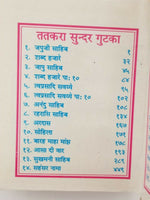 ततकरा सुन्दर गुटका
१. जपुजी साहिब १
२. शब्द हजारे ३२
३. जापु साहिब ४५
४. शब्द हजारे पा: १० ७४
५. त्वप्रसादि सवय्ये ८४
६. त्वप्रसादि सवय्ये पा: १०
७. अनंदु साहिब १०८
८. रहरासि साहिब
९. अरदास १७१
१०. सोहिला
११. बारह माहा मांझ
१२. आसा दी वार
१३. सुखमनी साहिब २८९
१४. सहंसर नामा ४४९